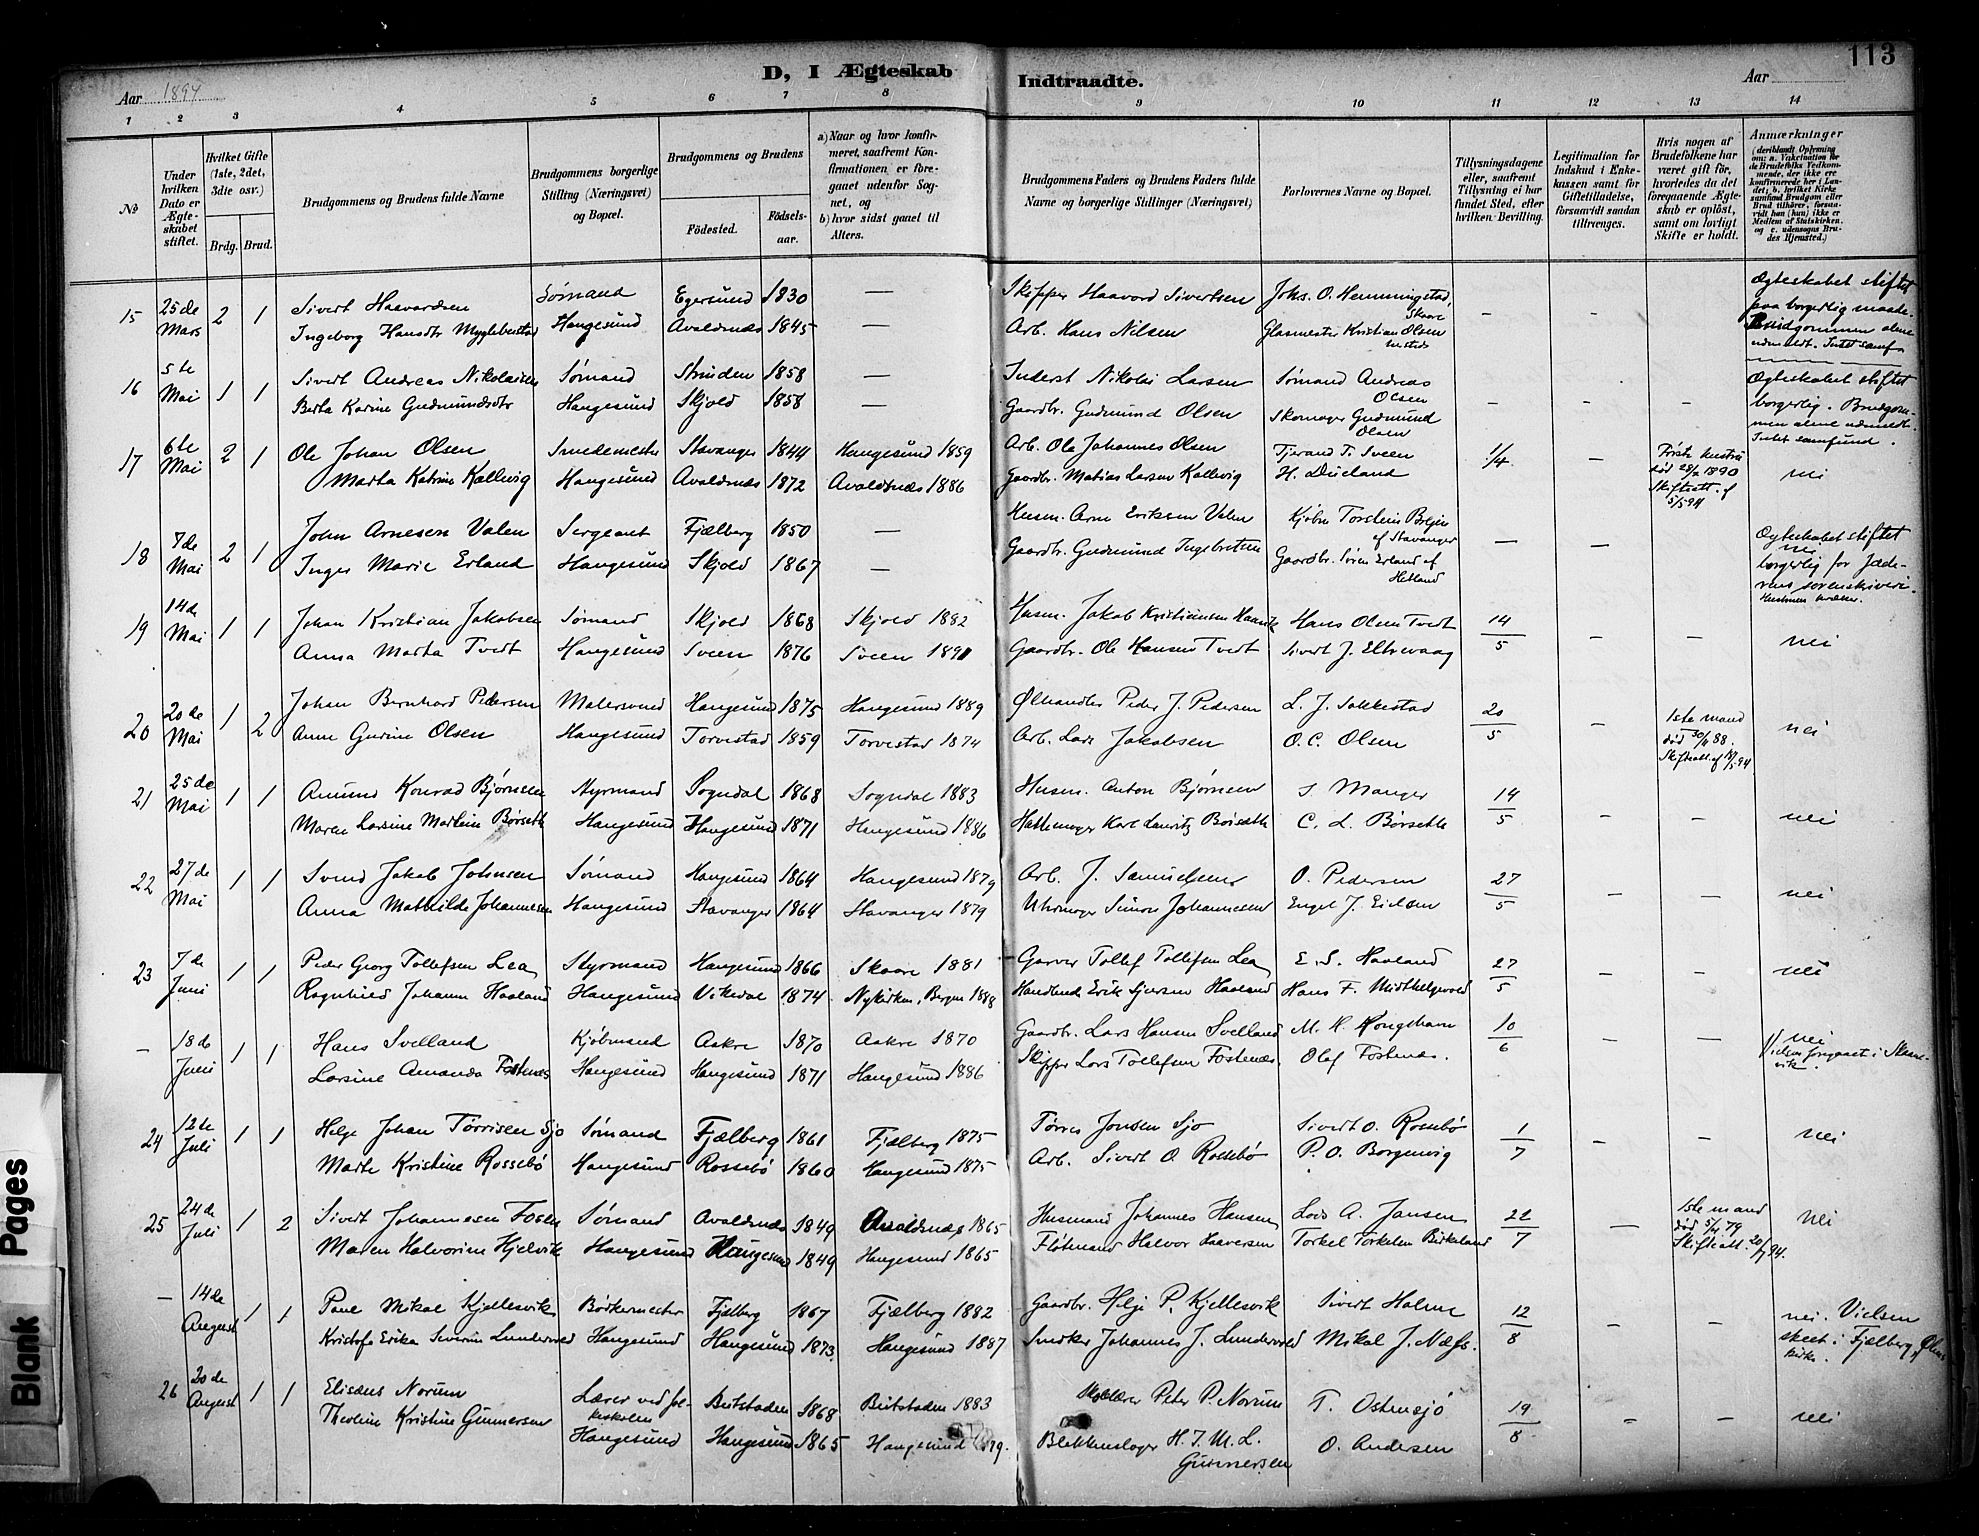 113
D, I Ægteskab Indtraadte.
Aar 1894
Aar
1 2 3 4 5 6 7 8 9 10 11 12 13 14
No
Under hvilken Dato er Ægteskabet stiftet.
Hvilket Gifte (1ste, 2det, 3die osv.)
Brdg. Brud.
Brudgommens og Brudens fulde Navne
Brudgommens borgerlige Stilling (Næringsvei) og Bopæl.
Brudgommens og Brudens
Fødested.
Fødselsaar.
a) Naar og hvor konfirmeret, saafremt Konfirmationen er foregaaet udenfor Sognet, og
b) hvor sidst gaaet til Alters.
Brudgommens Faders og Brudens Faders fulde Navne og borgerlige Stillinger (Næringsvei)
Forlovernes Navne og Bopæl.
Tillysningsdagene eller, saafremt Tillysning ei har fundet Sted, efter hvilken Bevilling.
Legitimation for Indskud i Enkekassen samt for Giftetilladelse, forsaavidt saadan tiltrænges.
Hvis nogen af Brudefolkene har været gift før, hvorledes da det foregaaende Ægteskab er opløst, samt om lovligt Skifte er holdt.
Anmærkninger (deriblandt Oplysning om: a. Vakcination for de Brudefolks Vedkommende, der ikke ere konfirmerede her i Landet; b. hvilket Kirkesamfund Brudgom eller Brud tilhører, forsaavidt han (hun) ikke er Medlem af Statskirken, og c. udensogns Brudes Hjemsted.)
15 25de Mars 2 1 Sivert Haavardsen Sømand Egersund 1830 — Skipper Haavord Sivertsen Johs. O. Hemmingstad, Skaare – – Ægteskabet stiftet paa borgerlig maade. Brudgommen alene udmeldt. Intet samf.
Ingeborg Hansdtr Mygleberstad Haugesund Avaldsnæs 1845 — Arb. Hans Nilsen Glasmester Kristian Olsen
16 5te Mai 1 1 Sivert Andreas Nikolaisen Sømand 1858 — Inderst Nikolai Larsen Sømand Andreas Olsen – – – Ægteskabet stiftet borgerlig. Brudgommen alene udmeldt. Intet samfund.
Berta Karine Gudmundsdtr Haugesund Skjold 1858 — Gaardbr. Gudmund Olsen Skomager Gudmund Olsen
17 6te Mai 2 1 Ole Johan Olsen Smedemester Stavanger 1844 Haugesund 1859 Arb. Ole Johannes Olsen Tjerand T. Sveen 1/4 – Første hustru død 28/2 1890 Skifteatt. af 5/5 94 nei
Marta Katrine Kallevig Haugesund Avaldsnæs 1872 Avaldsnæs 1886 Gaardbr. Matias Larsen Kallevig H. Dueland
18 7de Mai 2 1 John Arnesen Valen Sergeant Fjælberg 1850 — Husm. Arne Eriksen Valen Kjøbm Torstein af Stavanger — — Ægteskabet stiftet nei borgerlig for Jæderens sorenskriveri.
Inger Marie Erland Haugesund Skjold 1867 — Gaardbr. Gudmund Ingebretsen Gaardbr. Søren Erland af Hetland
19 14de Mai 1 1 Johan Kristian Jakobsen Sømand Skjold 1868 Skjold 1882 Husm. Jakob Kristiansen Hans Olsen Tvedt 14/5 – – nei
Anna Marta Tvedt Haugesund Sveen 1876 Sveen 1891 Gaardbr. Ole Hansen Tvedt Sivert J. Eltrevaag
20 20de Mai 1 2 Johan Bernhard Pedersen Malersvend Haugesund 1875 Haugesund 1889 Ølhandler Peder J. Pedersen L. J. Sakkestad 20/5 – 1ste mand død 30/ 88. Skifteatt. af 18/5 94 nei
Anne Gurine Olsen Haugesund Torvestad 1859 Torvestad 1874 Arb. Lars Jakobsen O. C. Olsen
21 25de Mai 1 1 Amund Konrad Bjørnsen Styrmand Sogndal 1868 Sogndal 1883 Husm. Anton Bjørnsen S. Manger 14/5 – – nei
Maren Larsine Børseth Haugesund Haugesund 1871 Haugesund 1886 Hattemager Karl Lauritz Børseth C. L. Børseth
22 27de Mai 1 1 Svend Jakob Johnsen Sømand Haugesund 1864 Haugesund 1879 Arb. J. Samuelsen O. Pedersen 27/5 – – nei
Anna Mathilde Johannesen Haugesund Stavanger 1864 Stavanger 1879 Uhrmager Simon Johannesen Engel J. Eielsen
23 7de Juni 1 1 Peder Georg Tollefsen Lea Styrmand Haugesund 1866 Skaare 1881 Garver Tollef Tollefsen Lea E. S. Haaland 27/5 – – nei
Ragnhild Johanne Haaland Haugesund Vikedal 1874 Nykirken, Bergen 1888 Handlende Erik Haaland Hans F. Midthelgevold
— 18de Juni 1 1 Hans Svelland Kjøbmand Aakre 1870 Aakre 1870 Gaardbr. Lars Hansen Svelland M. H. Kongshavn 10/6 – – nei Vielsen foregaaet i Skaanevik.
Larsine Amanda Fostenæs Haugesund Haugesund 1871 Haugesund 1886 Skipper Lars Tollefsen Fostenæs. Olaf Fostenæs.
24 12te Juli 1 1 Helge Johan Tørrisen Sjo Sømand Fjælberg 1861 Fjælberg 1875 Tørres Jonsen Sjo Sivert O. Rossebø 1/7 – – nei
Marte Kristine Rossebø Haugesund Rossebø 1860 Haugesund 1875 Arb. Sivert O Rossebø P. O. Borgenvig
25 24de Juli 1 2 Sivert Johannesen Fosen Sømand Avaldsnæs 1849 Avaldsnæs 1865 Husmand Johannes Hansen Lars A. Jansen 22/7 — 1ste mand død 5/ 79 Skifteatt. 20/7 94. nei
Maren Halvorine Hjelvik Haugesund Haugesund 1849 Haugesund 1865 Fløtmand Halvor Haaversen Torkel Torkelsen Birkeland
— 14de August 1 1 Paul Mikal Kjellesvik Bødkermester Fjælberg 1867 Fjælberg 1882 Gaardbr. Helje P. Kjellesvik Sivert Holme 12/8 – – nei. Vielsen skeet i Fjælberg, Ølens kirke.
Kristofa Erika Severine Lundevold Haugesund Haugesund 1873. Haugesund 1887 Snedker Johannes J. Lundevold Mikal J. Næss.
26 20de August 1 1 Elisæus Norum Lærer ved folkeskolen Beitstaden 1868 Beitstaden 1883 Skolelærer Peter P. Norum T. Ostensjø 19/8 – – nei
Theoline Kristine Gunnersen Haugesund Haugesund 1865 Haugesund 1879. Blikkenslager H. T. M. L. Gunnersen O. Andersen
Blank Pages